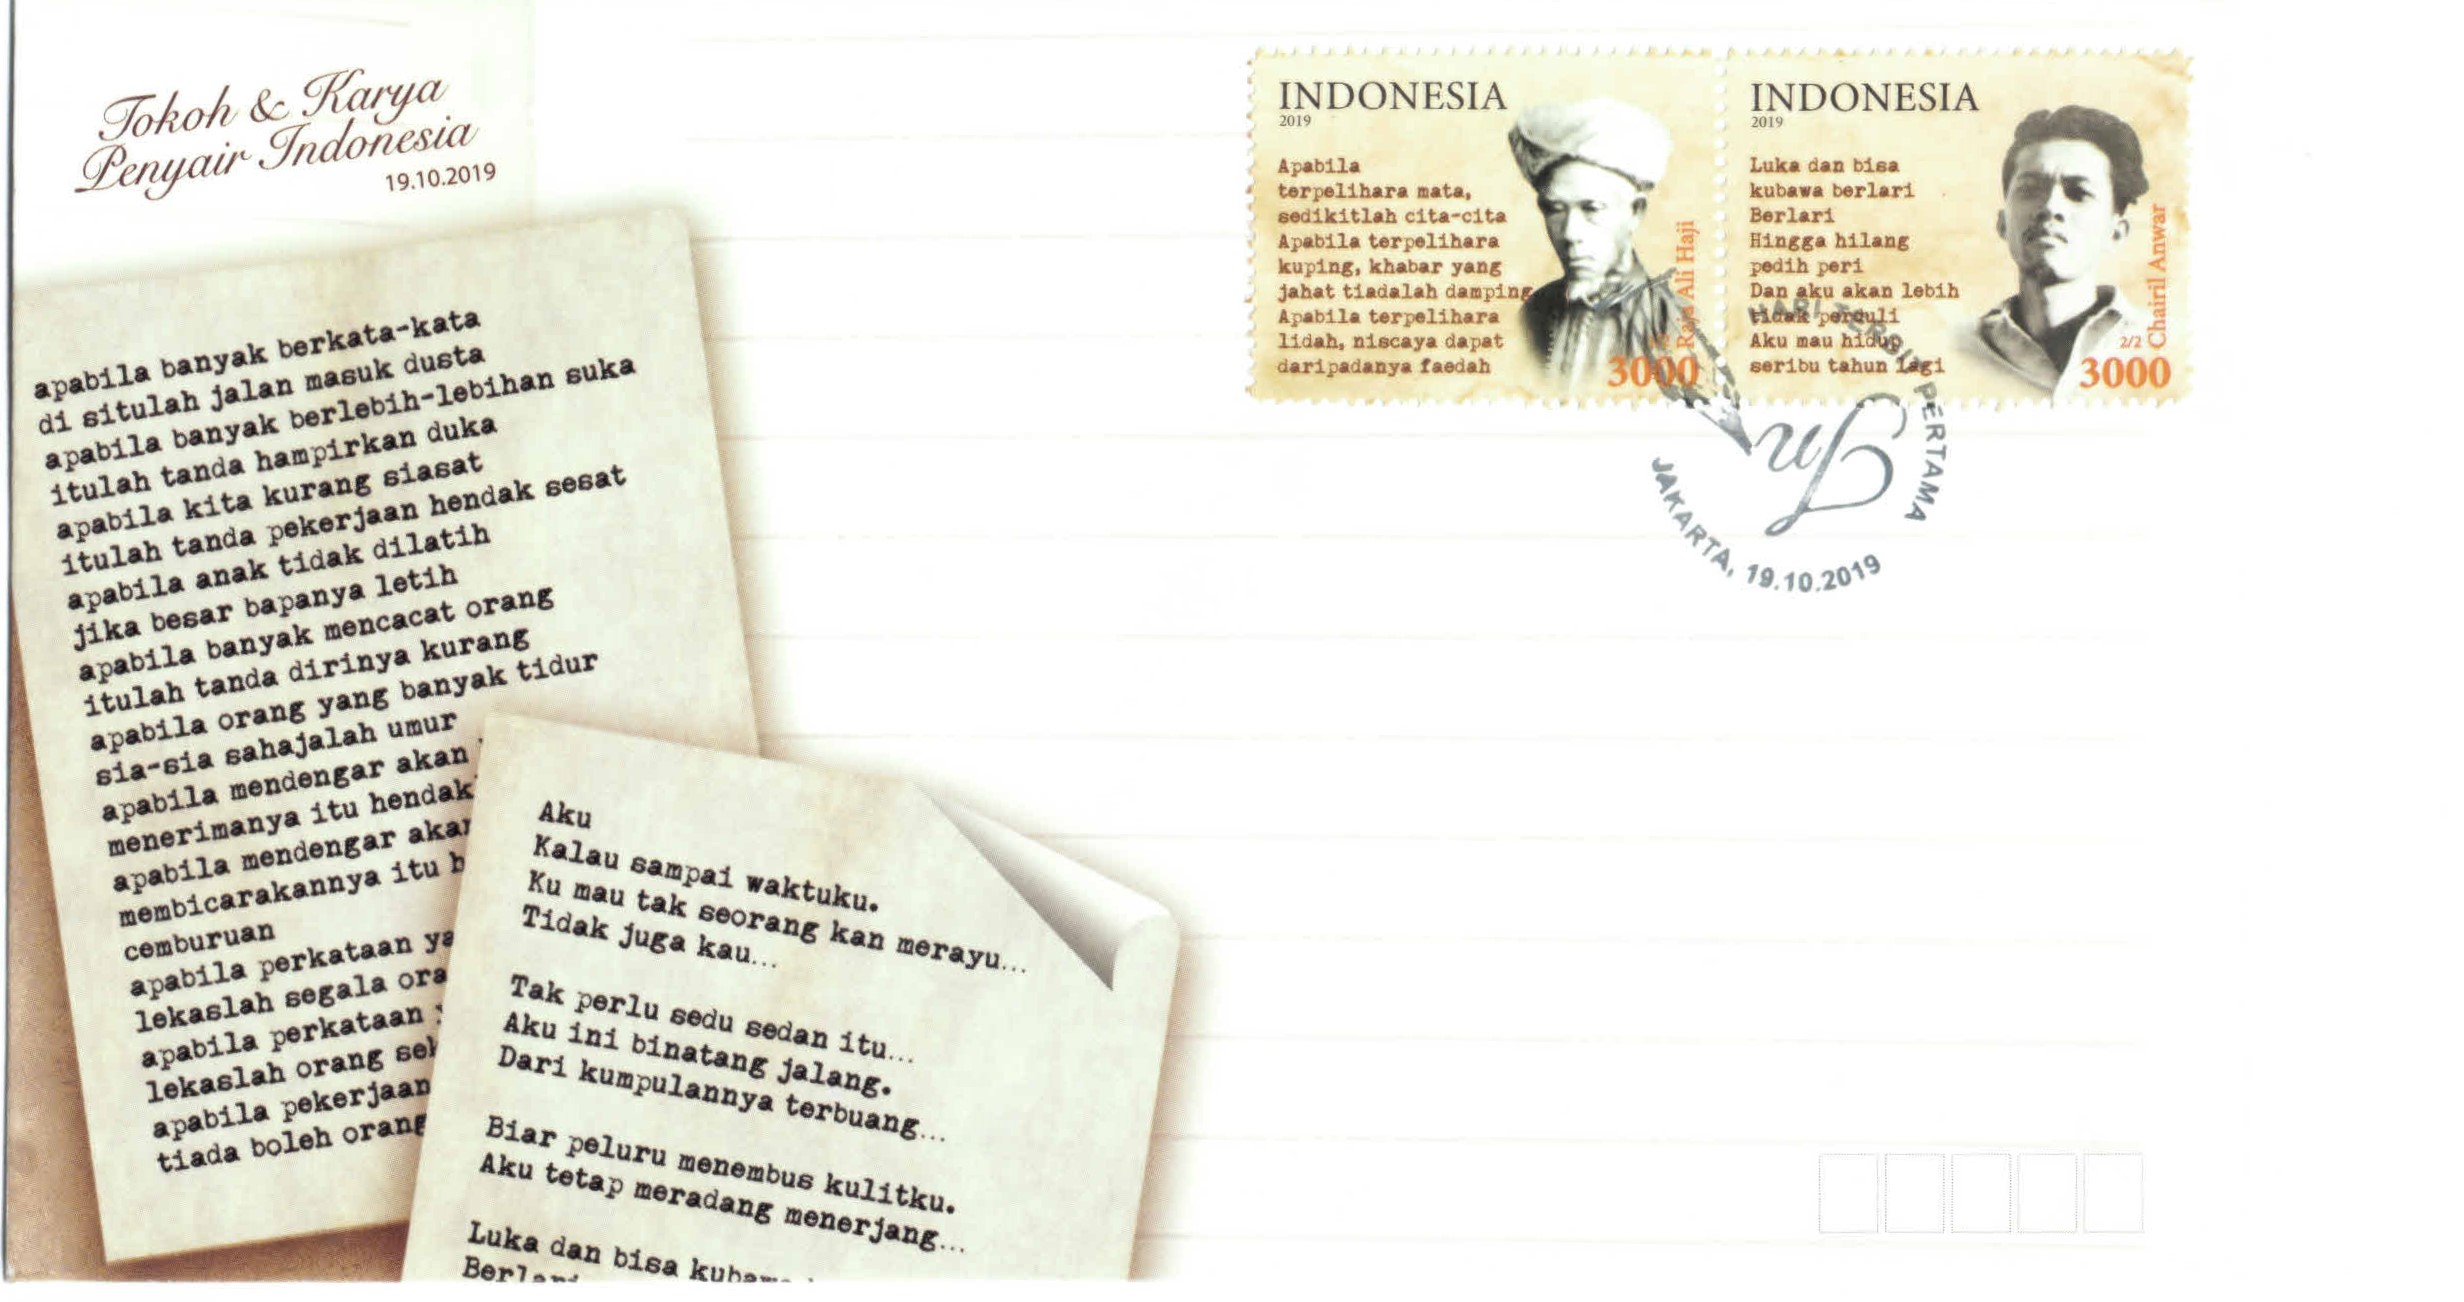 Tokoh & Karya
Penyair Indonesia
19.10.2019
apabila banyak berkata-kata
di situlah jalan masuk dusta
apabila banyak berlebih-lebihan suka
itulah tanda hampirkan duka
apabila kita kurang siasat
itulah tanda pekerjaan hendak sesat
apabila anak tidak dilatih
jika besar bapanya letih
apabila banyak mencacat orang
itulah tanda dirinya kurang
apabila orang yang banyak tidur
sia-sia sahajalah umur
apabila mendengar akan
menerimanya itu hendak
apabila mendengar akan
membicarakannya itu
cemburuan
apabila perkataan
lekaslah segala
apabila perkataan
lekaslah orang
apabila pekerjaan
tiada boleh orang
Aku
Kalau sampai waktuku.
Ku mau tak seorang kan merayu...
Tidak juga kau...
Tak perlu sedu sedan itu...
Aku ini binatang jalang.
Dari kumpulannya terbuang...
Biar peluru menembus kulitku.
Aku tetap meradang menerjang...
Luka dan bisa kubawa
Berlari
INDONESIA
2019
Apabila
terpelihara mata,
sedikitlah cita-cita
Apabila terpelihara
kuping, khabar yang
jahat tiadalah damping
Apabila terpelihara
lidah, niscaya dapat
daripadanya faedah
Raja Ali Haji
3000
INDONESIA
2019
Luka dan bisa
kubawa berlari
Berlari
Hingga hilang
pedih peri
Dan aku akan lebih
tidak perduli
Aku mau hidup
seribu tahun lagi
2/2
Chairil Anwar
3000
HARI TERBIT PERTAMA
JAKARTA, 19.10.2019